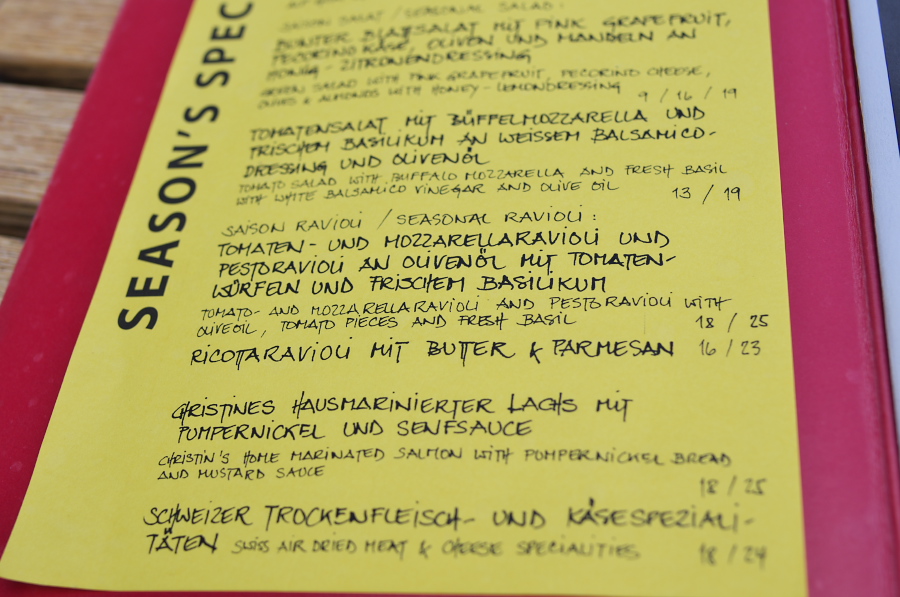 SEASON'S SPEC
SAISON SALAT / SEASONAL SALAD:
BUNTER BLATTSALAT MIT PINK GRAPEFRUIT,
PECORINO KÄSE, OLIVEN UND MANDELN AN
HONIG - ZITRONENDRESSING
GREEN SALAD WITH PINK GRAPEFRUIT, PECORINO CHEESE,
OLIVES & ALMONDS WITH HONEY - LEMONDRESSING
9 / 16 / 19
TOMATENSALAT MIT BÜFFELMOZZARELLA UND
FRISCHEM BASILIKUM AN WEISSEM BALSAMICO-
DRESSING UND OLIVENÖL
TOMATO SALAD WITH BUFFALO MOZZARELLA AND FRESH BASIL
WITH WHITE BALSAMICO VINEGAR AND OLIVE OIL 13 / 19
SAISON RAVIOLI / SEASONAL RAVIOLI:
TOMATEN- UND MOZZARELLARAVIOLI UND
PESTORAVIOLI AN OLIVENÖL MIT TOMATEN-
WÜRFELN UND FRISCHEM BASILIKUM
TOMATO- AND MOZZARELLARAVIOLI AND PESTORAVIOLI WITH
OLIVEOIL, TOMATO PIECES AND FRESH BASIL 18 / 25
RICOTTARAVIOLI MIT BUTTER & PARMESAN 16 / 23
CHRISTINES HAUSMARINIERTER LACHS MIT
PUMPERNICKEL UND SENFSAUCE
CHRISTIN'S HOME MARINATED SALMON WITH PUMPERNICKEL BREAD
AND MUSTARD SAUCE
18 / 25
SCHWEIZER TROCKENFLEISCH- UND KÄSESPEZIALI-
TÄTEN SWISS AIR DRIED MEAT & CHEESE SPECIALITIES 18 / 24